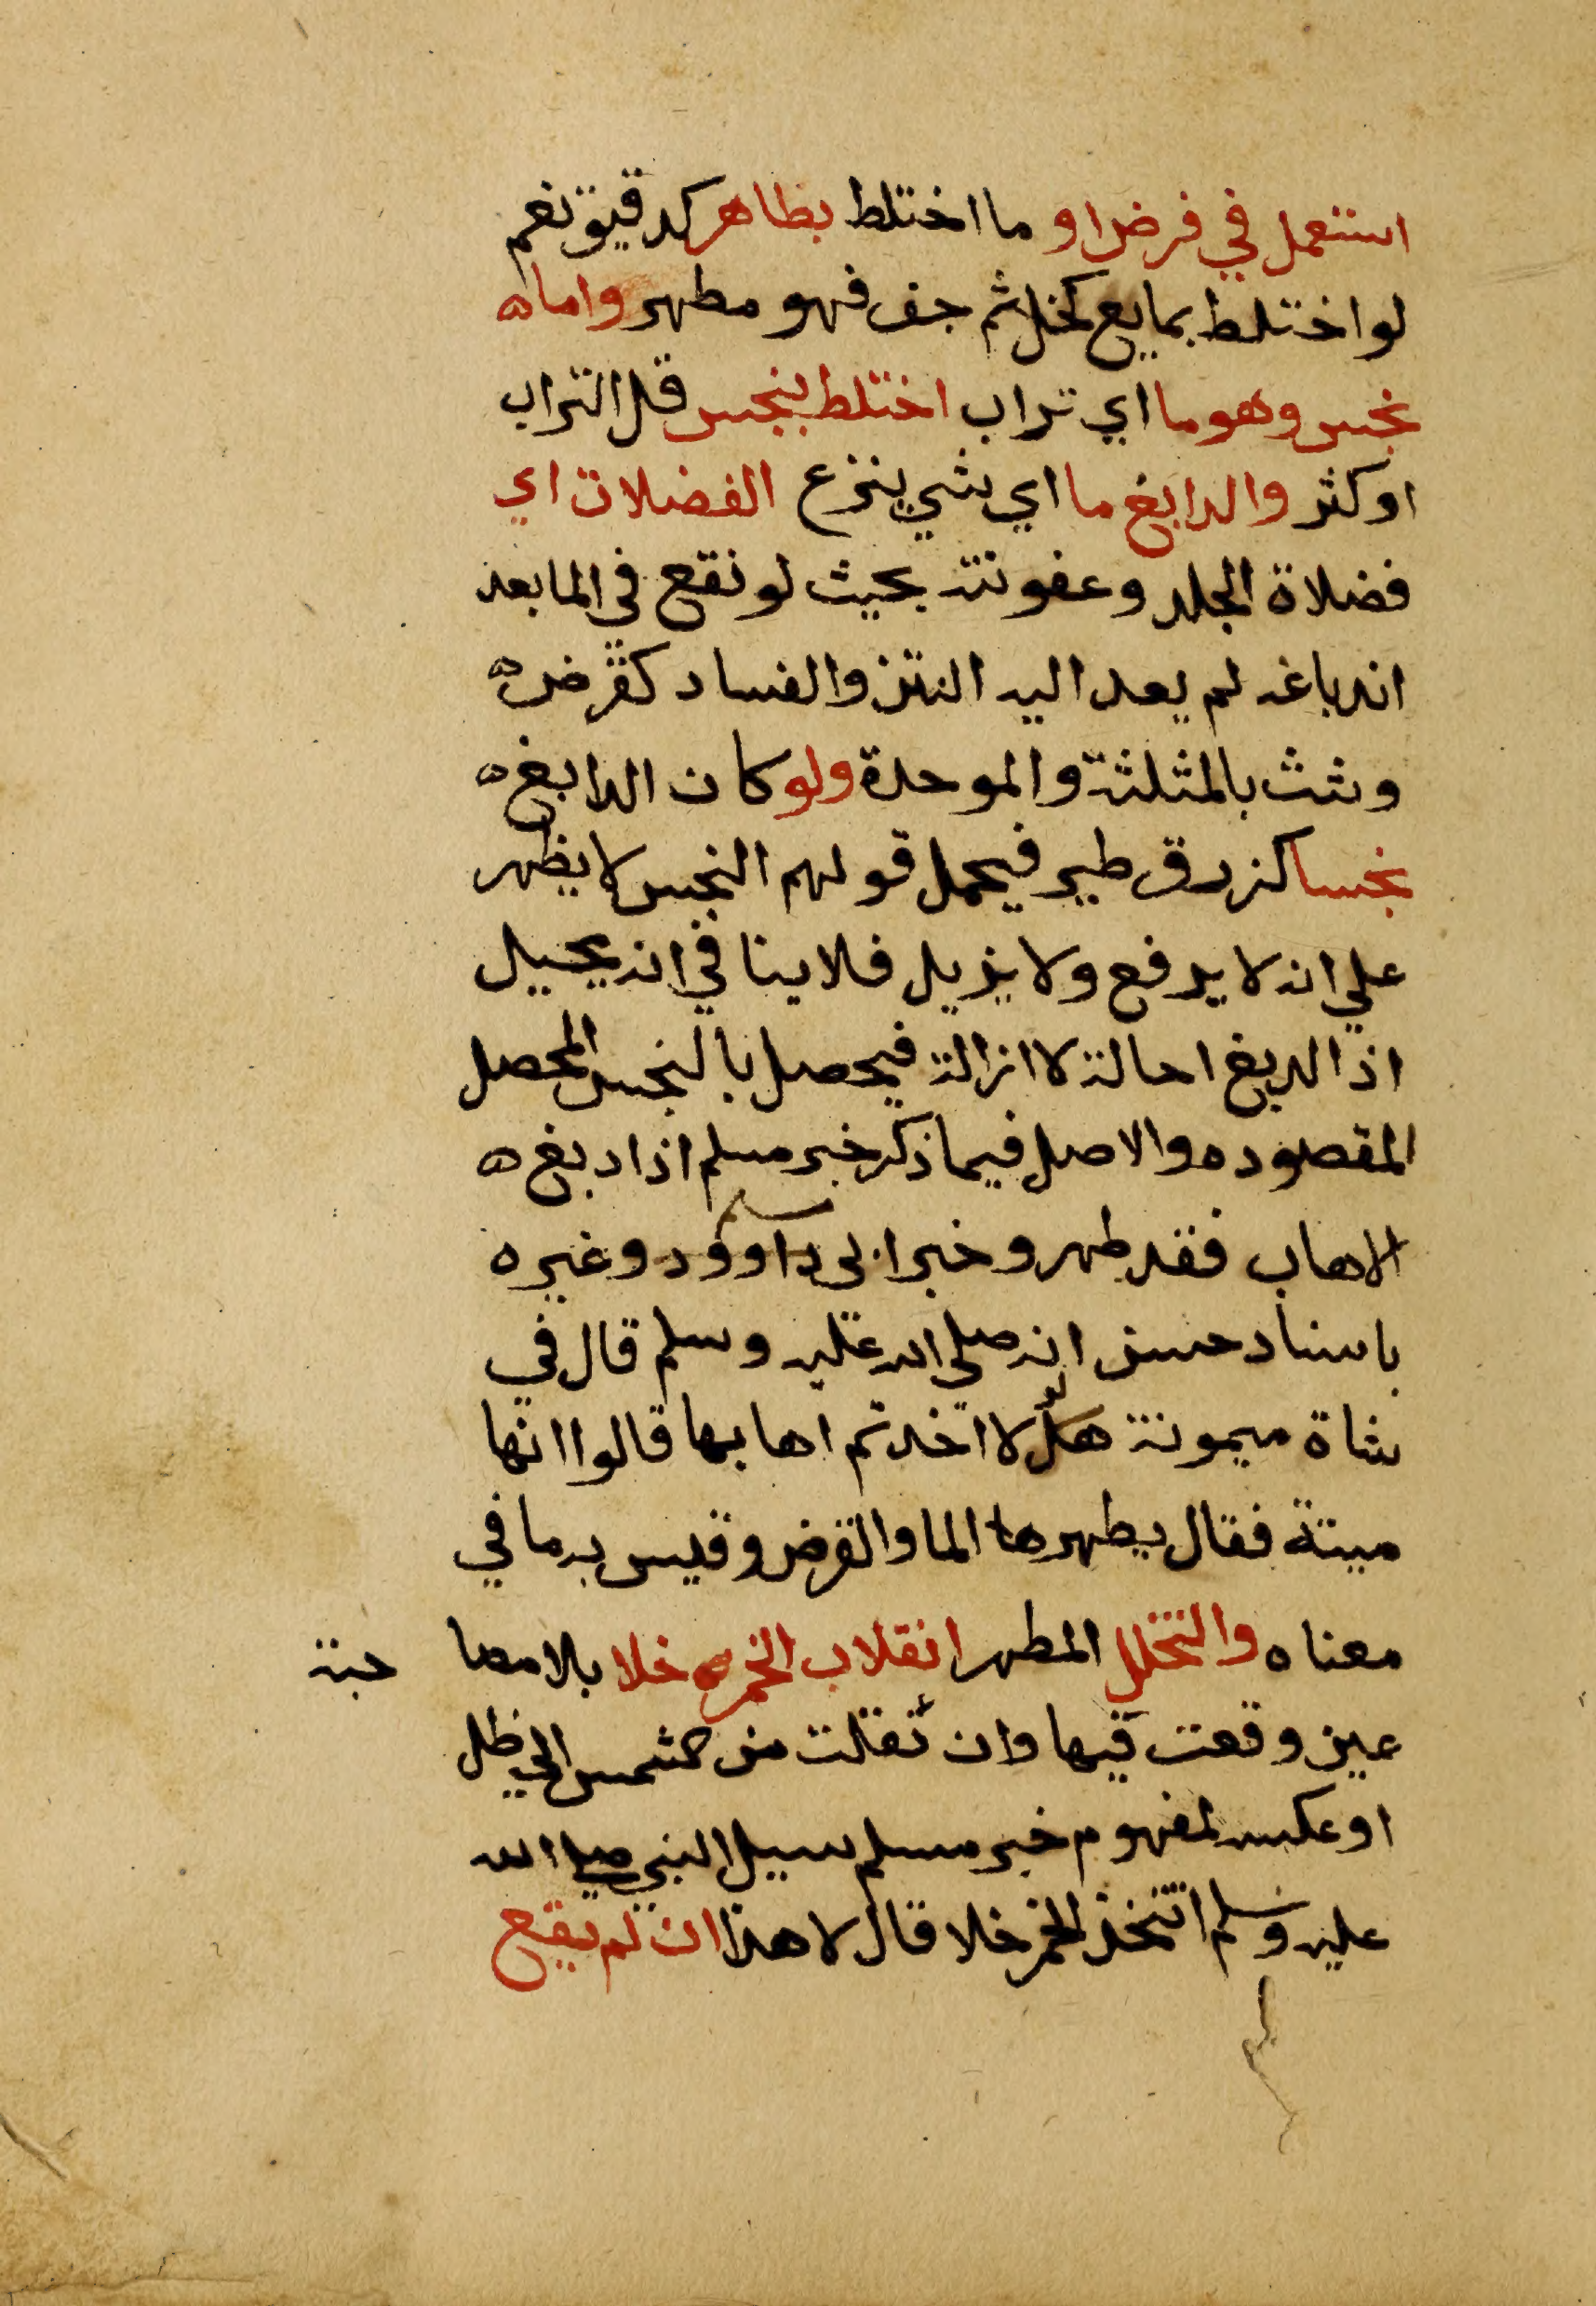 استعمل في فرض او ما اختلط بطاهر كدقيق نعم
لو اختلط بمايع كخل ثم جف فهو مطهر واما
نجس وهو ما اي تراب اختلط بنجس قل التراب
او كثر والدابغ ما اي شي ينزع الفضلات اي
فضلاة الجلد وعفونته بحيث لو نقع في الما بعد
اندباغه لم يعد اليه النتن والفساد كقرض
وشث بالمثلثة والموحدة ولو كان الدابغ
نجسا كزرق طير فيحمل قولهم النجس لا يطهر
علي انه لا يرفع ولا يزيل فلا ينافي انه يحيل
اذ الدبغ احالة لا ازالة فيحصل بالنجس المحصل
المقصود والاصل فيما ذكر خبر مسلم اذا دبغ
الاهاب فقد طهر وخبر ابي داوود وغيره
باسناد حسن انه صلي الله عليه وسلم قال في
شاة ميمونة هلا لو اخذتم اهابها قالوا انها
ميتة فقال يطهرها الما والقرض وقيس به ما في
معناه والتخلل المطهر انقلاب الخمر خلا بلا مصا حبة
عين وقعت فيها وان نقلت من شمس الي ظل
او عكسه لمفهوم خبر مسلم سيل النبي صلي الله
عليه وسلم اتتخذ الخمر خلا قال لا هذا ان لم يقع